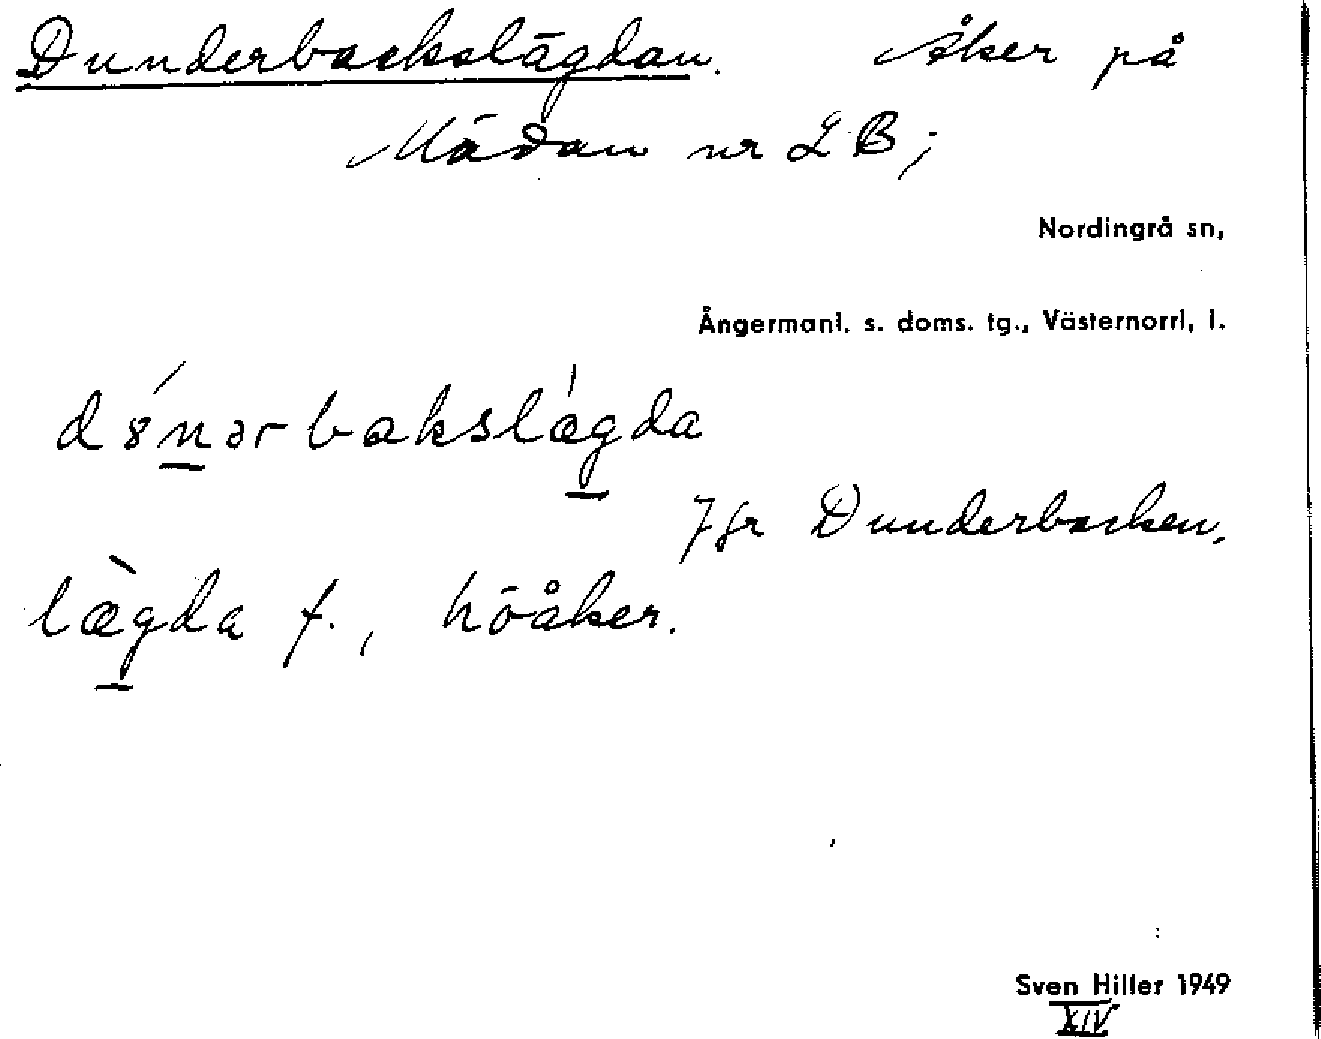 Dunderbackslägdan. Åker på
Mädan nr 2 B;
Nordingrå sn,
Ångermanl. s. doms. tg., Västernorrl, l.
d8́nərbakslǽgda
Jfr Dunderbacken,
læ̀gda f., höåker.
Sven Hiller 1949
XIV